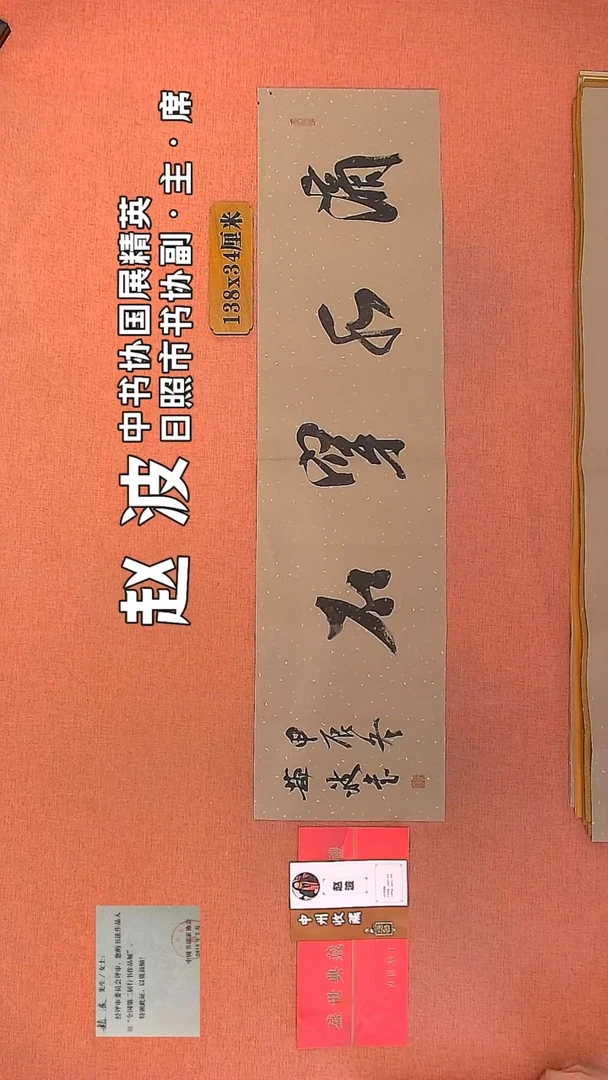 赵波
中书协国展精英
日照市书协副·主·席
138x34厘米
滴水穿石
甲辰冬
趙波書
赵波
中州收藏
盛世典藏
赵波 先生/女士:
经评审委员会评审,您的书法作品入
展“全国第二届行书作品展”。
特颁此证,以资鼓励!
中国书法家协会